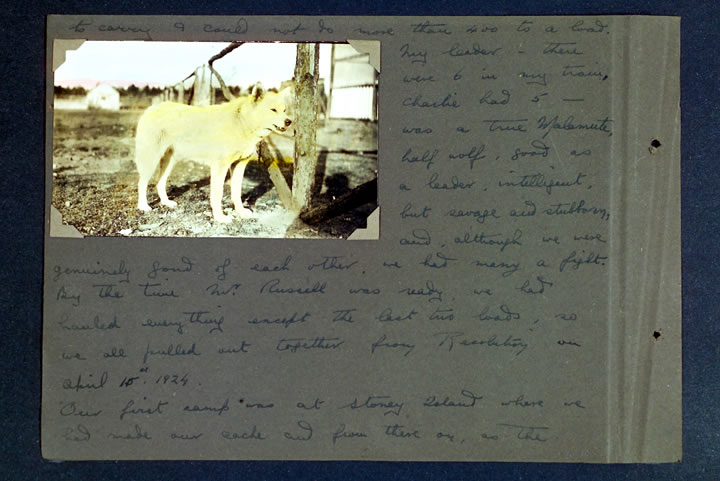 to carry I could not do more than 400 to a load.
My leader - there
were 6 in my train,
Charlie had 5 —
was a true Malamute,
half wolf, good as
a leader, intelligent,
but savage and stubborn,
and, although we were
genuinely fond of each other, we had many a fight.
By the time Mr. Russell was ready, we had
hauled everything except the last two loads, so
we all pulled out together from Resolution on
April 15th. 1924.
Our first camp was at Stoney Island where we
had made our cache and from there on, as the